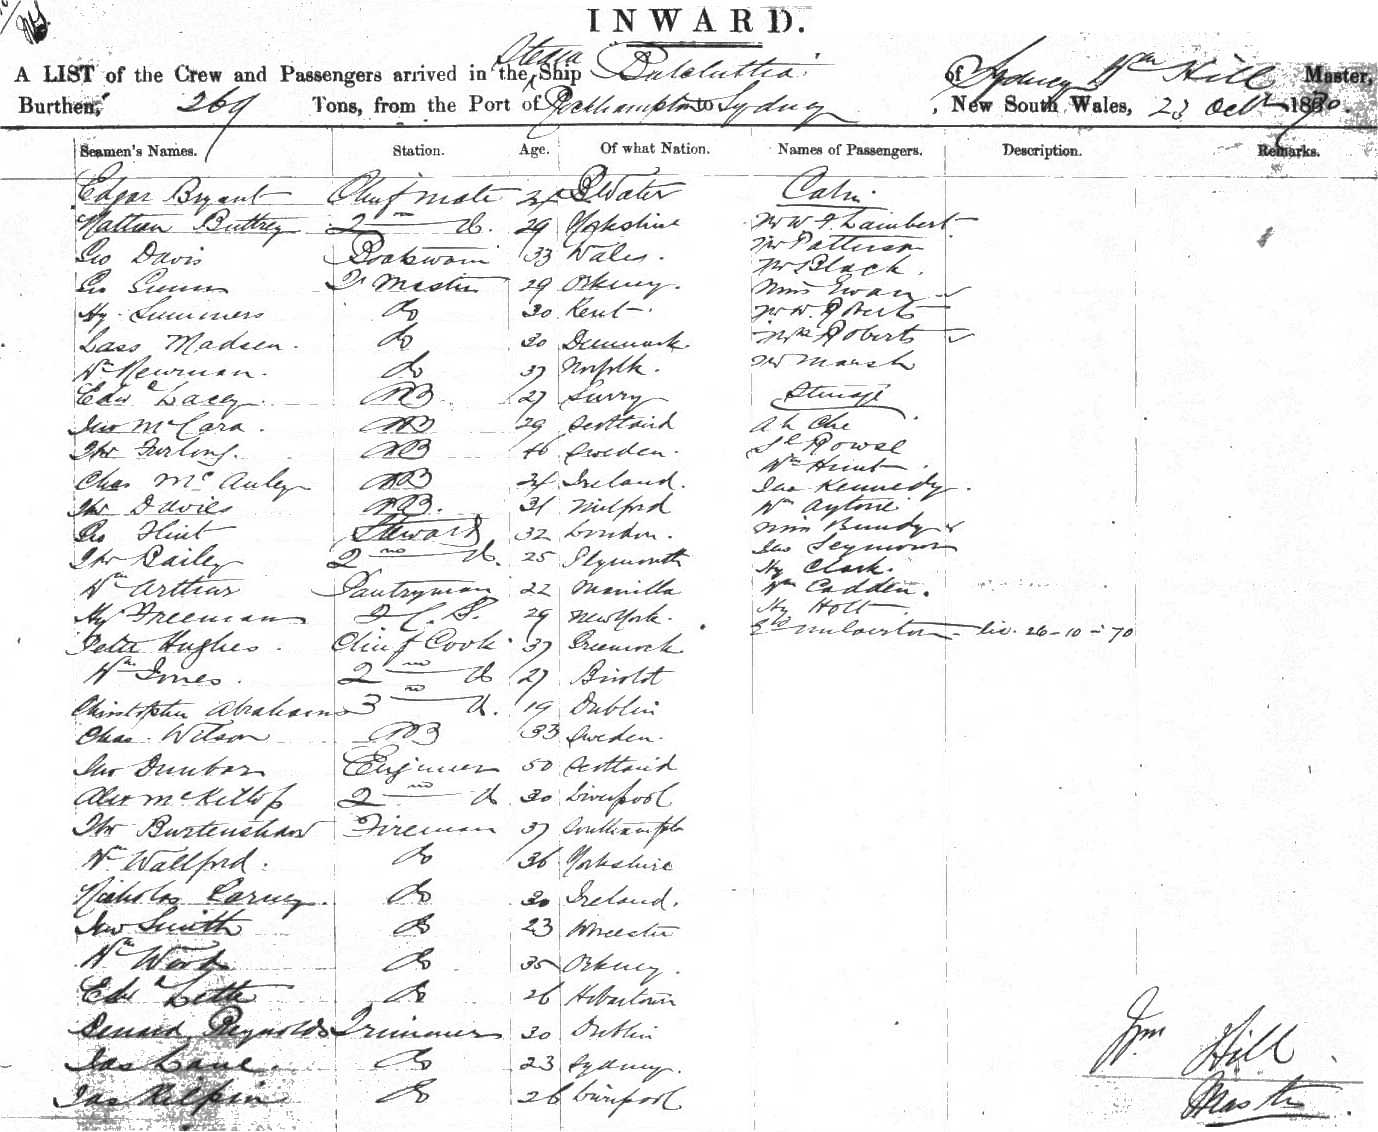 INWARD.
A LIST of the Crew and Passengers arrived in the Ship Balclutha of Sydney Wm Hill Master,
Burthen, 269 Tons, from the Port of Rockhampton to Sydney, New South Wales, 23 Octr 1870
Seamen's Names. Station. Age. Of what Nation. Names of Passengers. Description. Remarks.
Edgar Bryant Chief mate BWater Cabin
Buttrey 2nd do. 29 Yorkshire Mr W F Lambert
Geo Davis Boatswain 33 Wales. Mr Patterson
Geo Gunn Qr Master 29 Orkney. Mr Black.
Hy Summers do 30 Kent. Miss Ewan
Lass Madsen. do 30 Denmark. Mr W Roberts
Wm Newman. do 37 Norfolk. Mrs Roberts
Edwd Lacey. AB 27 Surry Mr Marsh
Jno McCara. AB 29 Scotland Steerage
Thos Furling. AB 46 Sweden. Ah Che
Chas McAuley AB 24 Ireland. Rowse
Thos Davies AB. 31 Milford Wm Hunt
Geo Flint Steward 32 London. Jas Kennedy.
Thos Bailey 2nd do. 25 Plymouth Wm Aytone
Wm Arthur Pantryman 22 Manilla Miss Bundy
Hy Freeman F.C.S. 29 New York. Jno Seymour
Peter Hughes. Chief Cook 37 Greenock Hy Clark.
Wm Jones. 2nd do 27 Bristol Wm Cadden.
Christopher Abrahams 3rd do. 19 Dublin Hy Holt
Chas. Wilson AB 33 Sweden. 26-10-70
Jno Dunbar Engineer 50 Scotland
Alex McKillop 2nd do 30 Liverpool
Thos Burtenshaw Fireman 37 Southampton
Wm Wallford. do 36 Yorkshire
Nicholas Carney. do 30 Ireland.
Jno Smith do 23 Worcester
Wm Wood do 35 Orkney.
Edwd Lette do 26 Hobartown
Reynolds Trimmer 30 Dublin
Jas Lane. do 23 Sydney.
Jas Kilpin do 26 Liverpool
Wm Hill
Master.